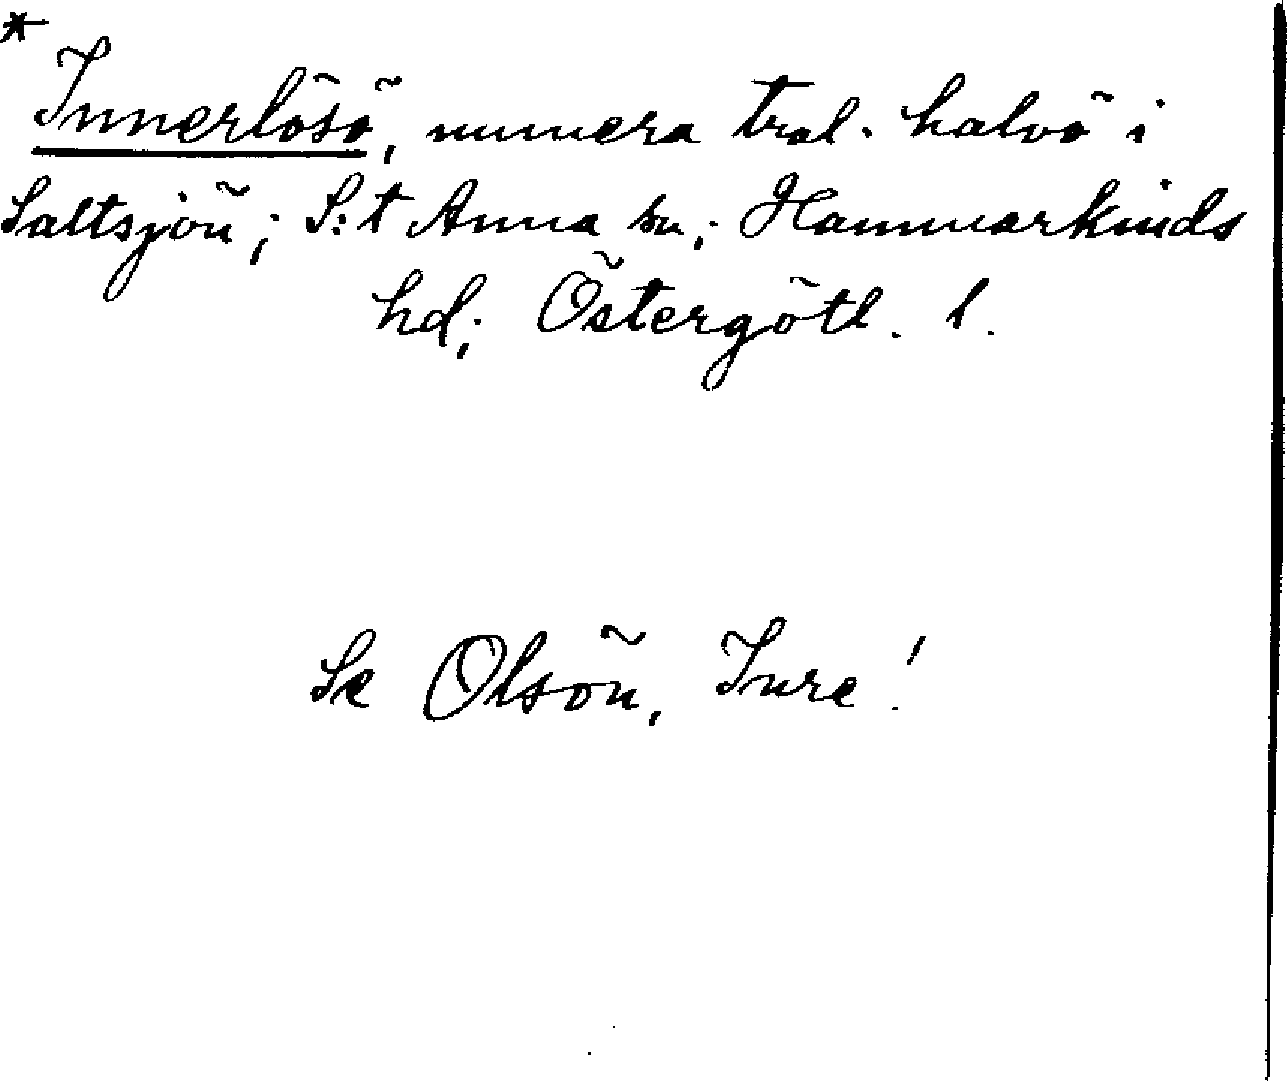 * Innerlösö, numera trol. halvö i
Saltsjön; S:t Anna sn; Hammarkinds
hd; Östergötl. l.
Se Olsön, Inre!